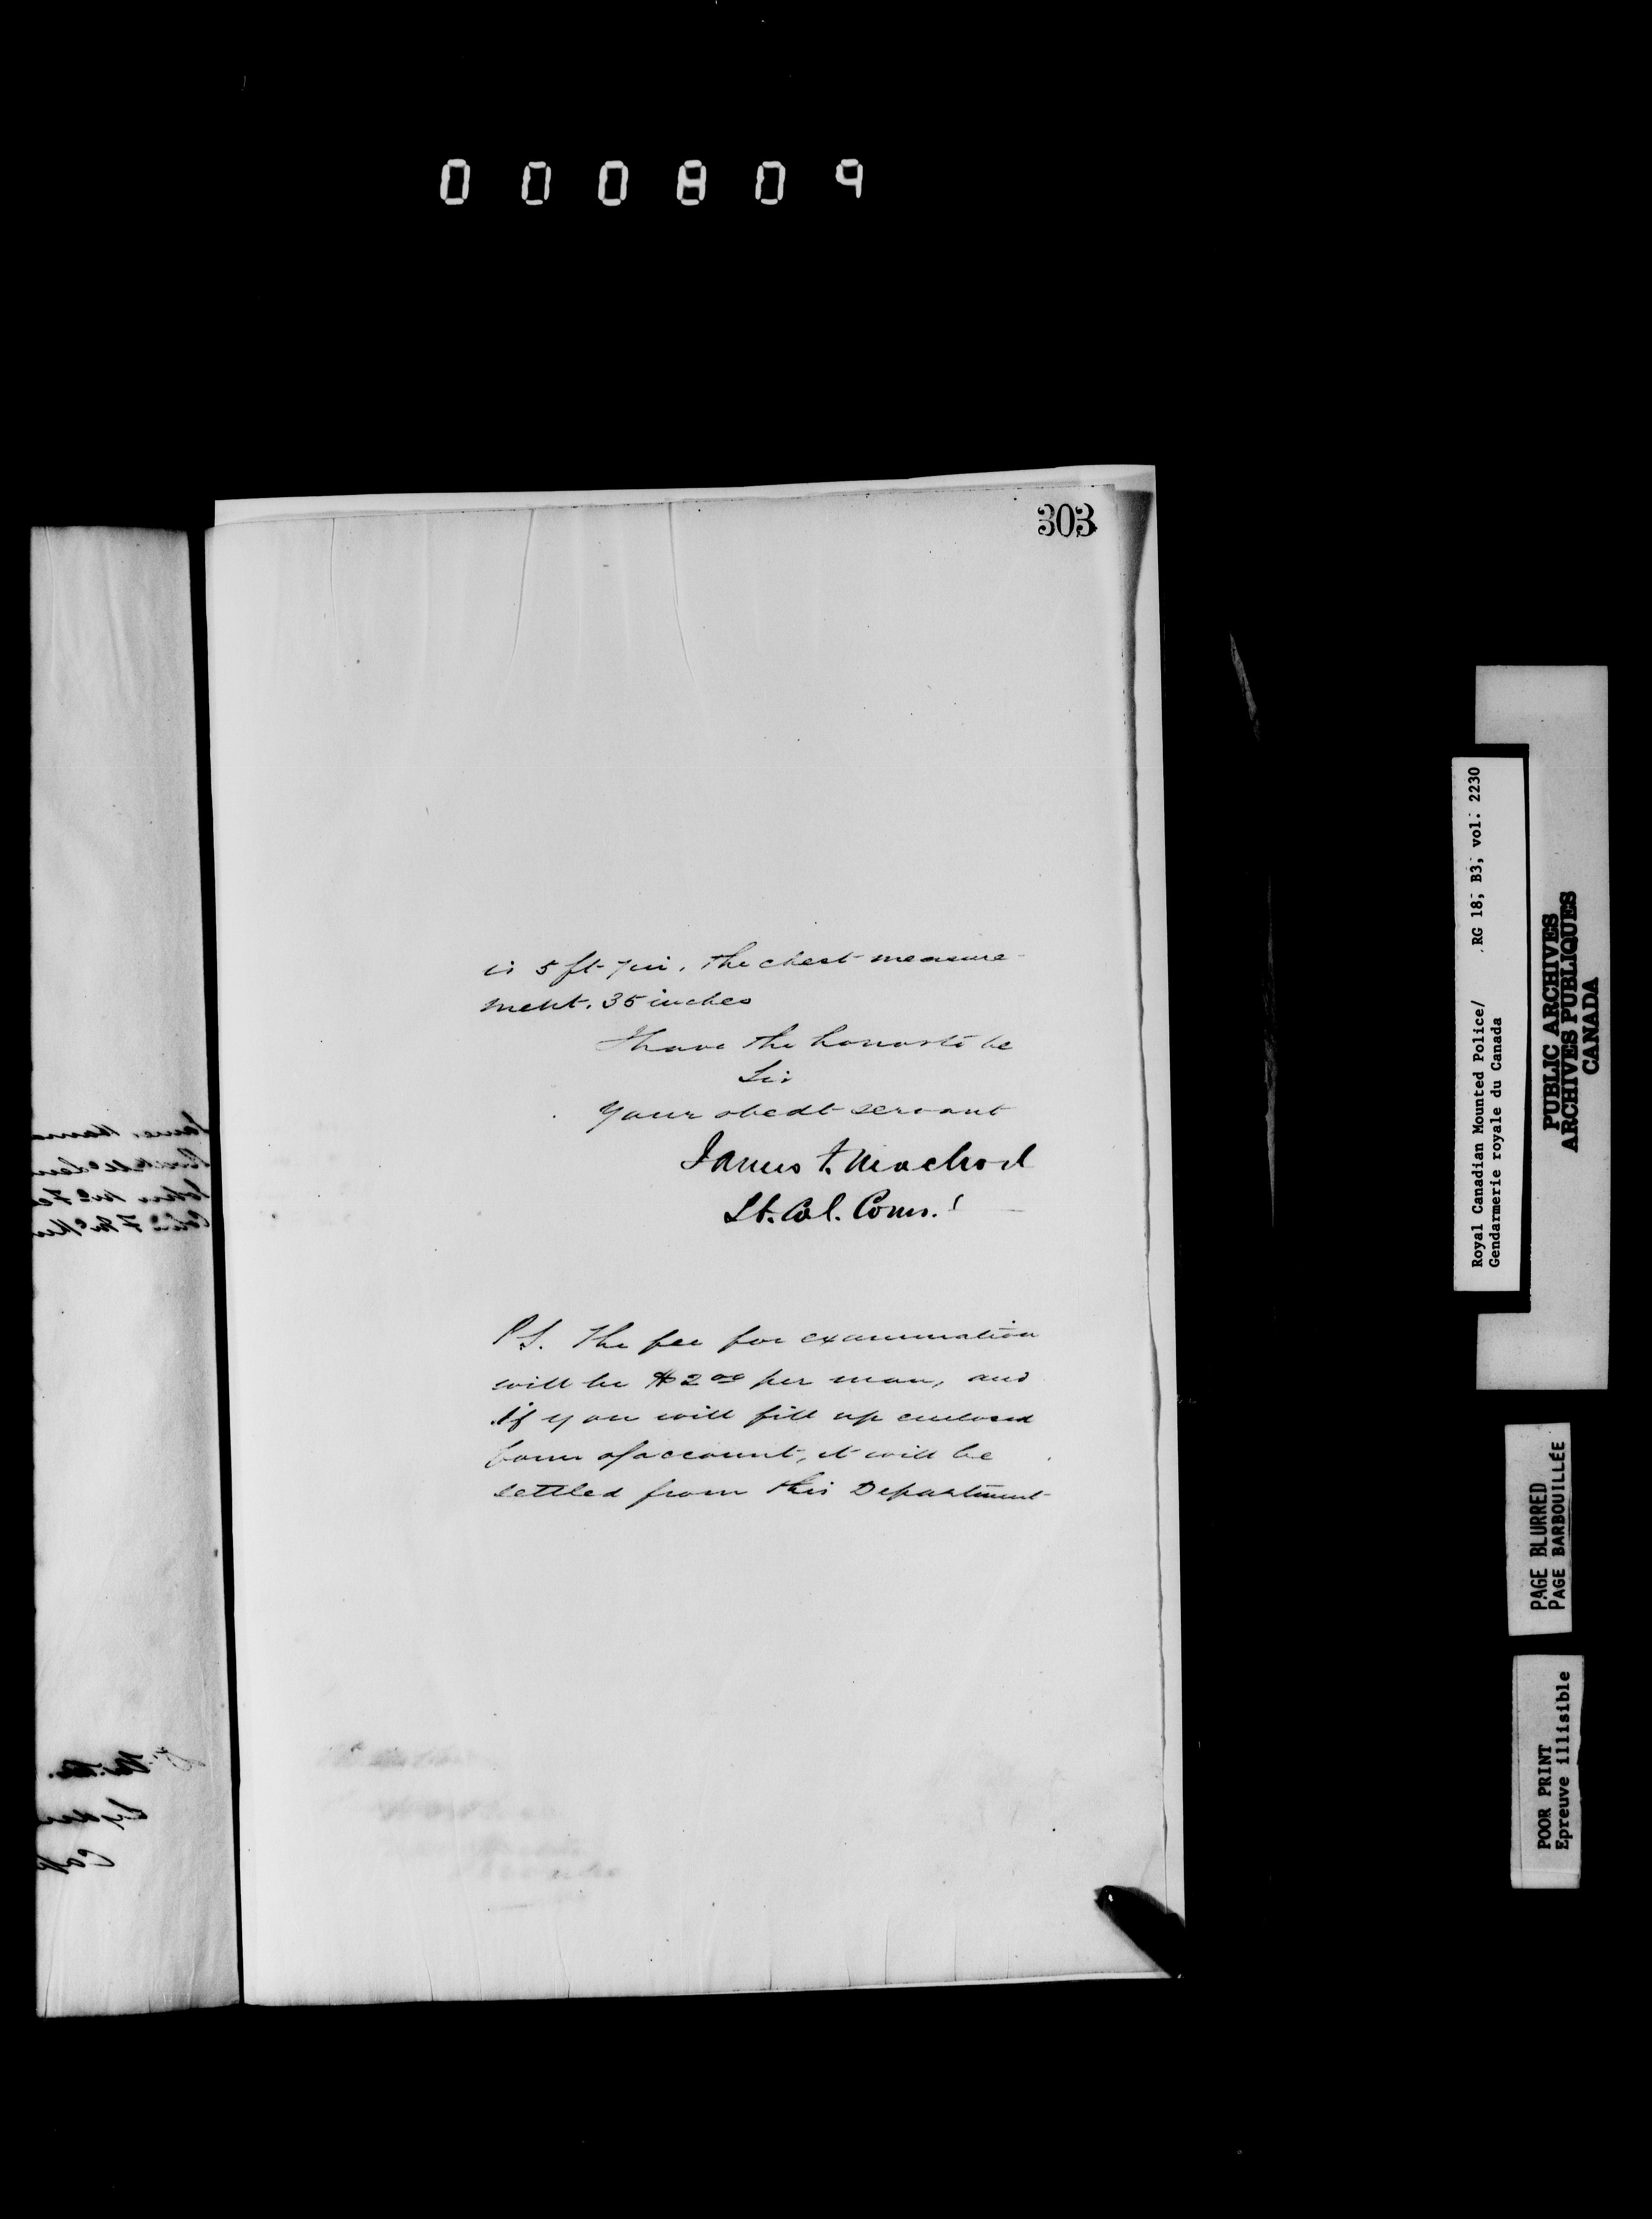 000809
303
is 5 ft 7 in. the chest measure-
ment. 35 inches
I have the honor to be
Sir
Your obedt servant
James F. Macleod
Lt. Col. Comr.
P.S. The fee for examination
will be $2 00 per man, and
if you will fill up enclosed
form of account, it will be
settled from this Department
Royal Canadian Mounted Police/ RG 18, B3, vol. 2230
Gendarmerie royale du Canada
PUBLIC ARCHIVES
ARCHIVES PUBLIQUES
CANADA
PAGE BLURRED
PAGE BARBOUILLÉE
POOR PRINT
Epreuve illisible